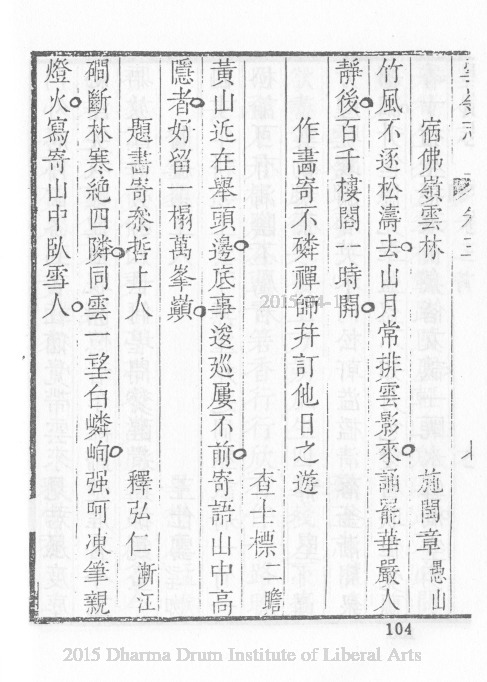 宿佛嶺雲林　施閏章愚山
竹風不逐松濤去山月常排雲影來誦罷華嚴人
靜後百千樓閣一時開
作畵寄不磷禪師幷訂他日之遊
查士標二瞻
黃山近在舉頭邊底事逡廵屢不前寄語山中高
隱者好留一榻萬峯巔
題畵寄桼哲上人　釋弘仁漸江
磵斷林寒絕四隣同雲一望白嶙峋强呵凍筆親
燈火寫寄山中臥雪人
104
2015 Dharma Drum Institute of Liberal Arts